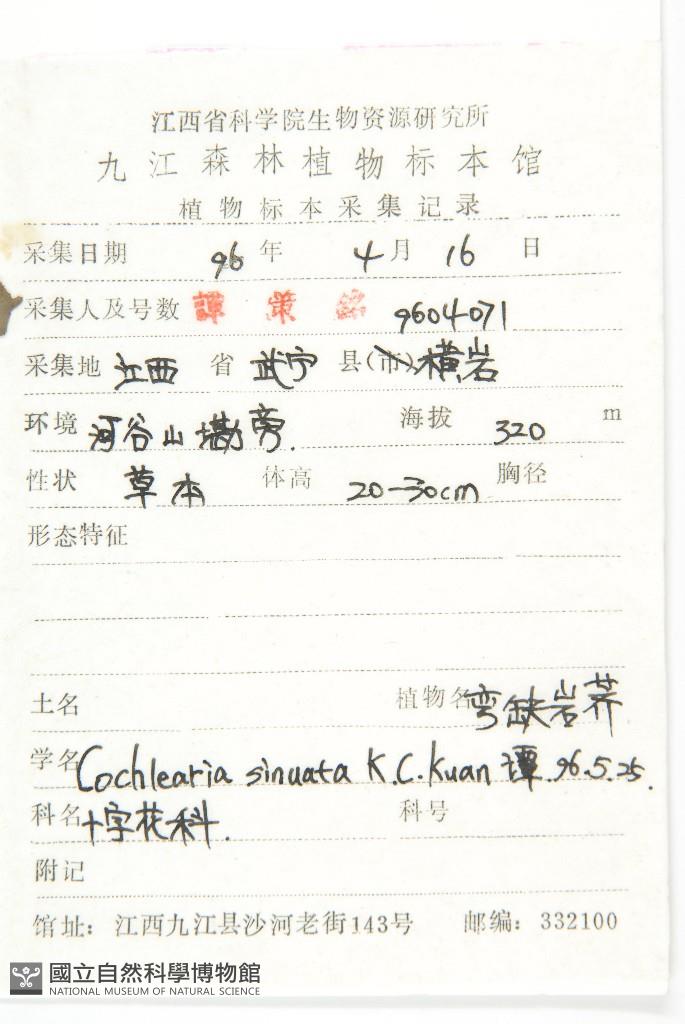 江西省科学院生物资源研究所
九江森林植物标本馆
植物标本采集记录
采集日期 96 年 4 月 16 日
采集人及号数 譚策銘 9604071
采集地 江西 省 武宁 县(市) 横岩
环境 河谷山墈旁. 海拔 320 m
性状 草本 体高 20-30cm 胸径
形态特征
土名 植物名 弯缺岩荠
学名 Cochlearia sinuata K.C.Kuan 谭.96.5.25.
科名 十字花科. 科号
附记
馆址：江西九江县沙河老街143号 邮编：332100
國立自然科學博物館
NATIONAL MUSEUM OF NATURAL SCIENCE